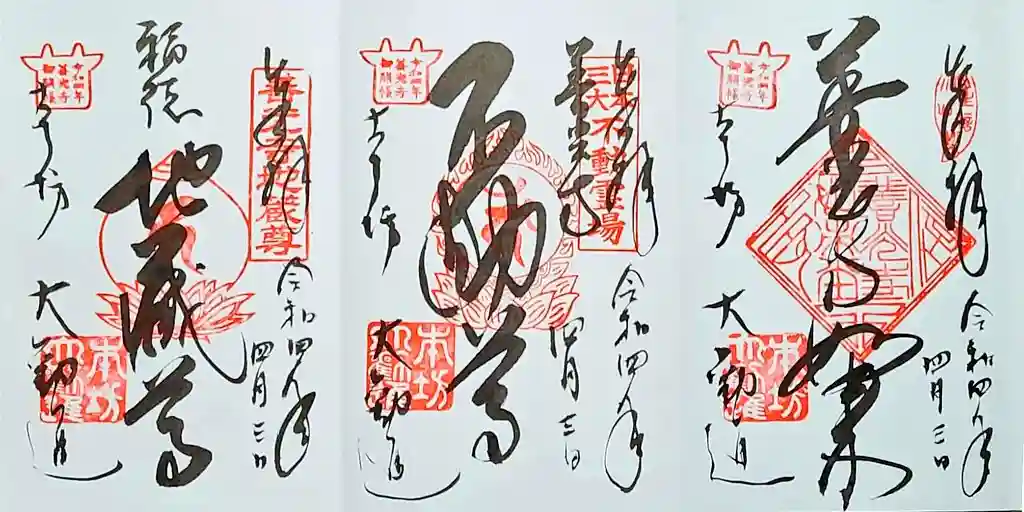 奉拝
善光寺地蔵尊
令和四年
四月三日
福徳
地蔵尊
令和四年
善光寺
御開帳
大勧進
本坊
大勧進
奉拝
三大不動霊場
令和四年
四月三日
善光寺
不動尊
令和四年
善光寺
御開帳
大勧進
本坊
大勧進
奉拝
令和四年
四月三日
善光寺如来
令和四年
善光寺
御開帳
大勧進
本坊
大勧進